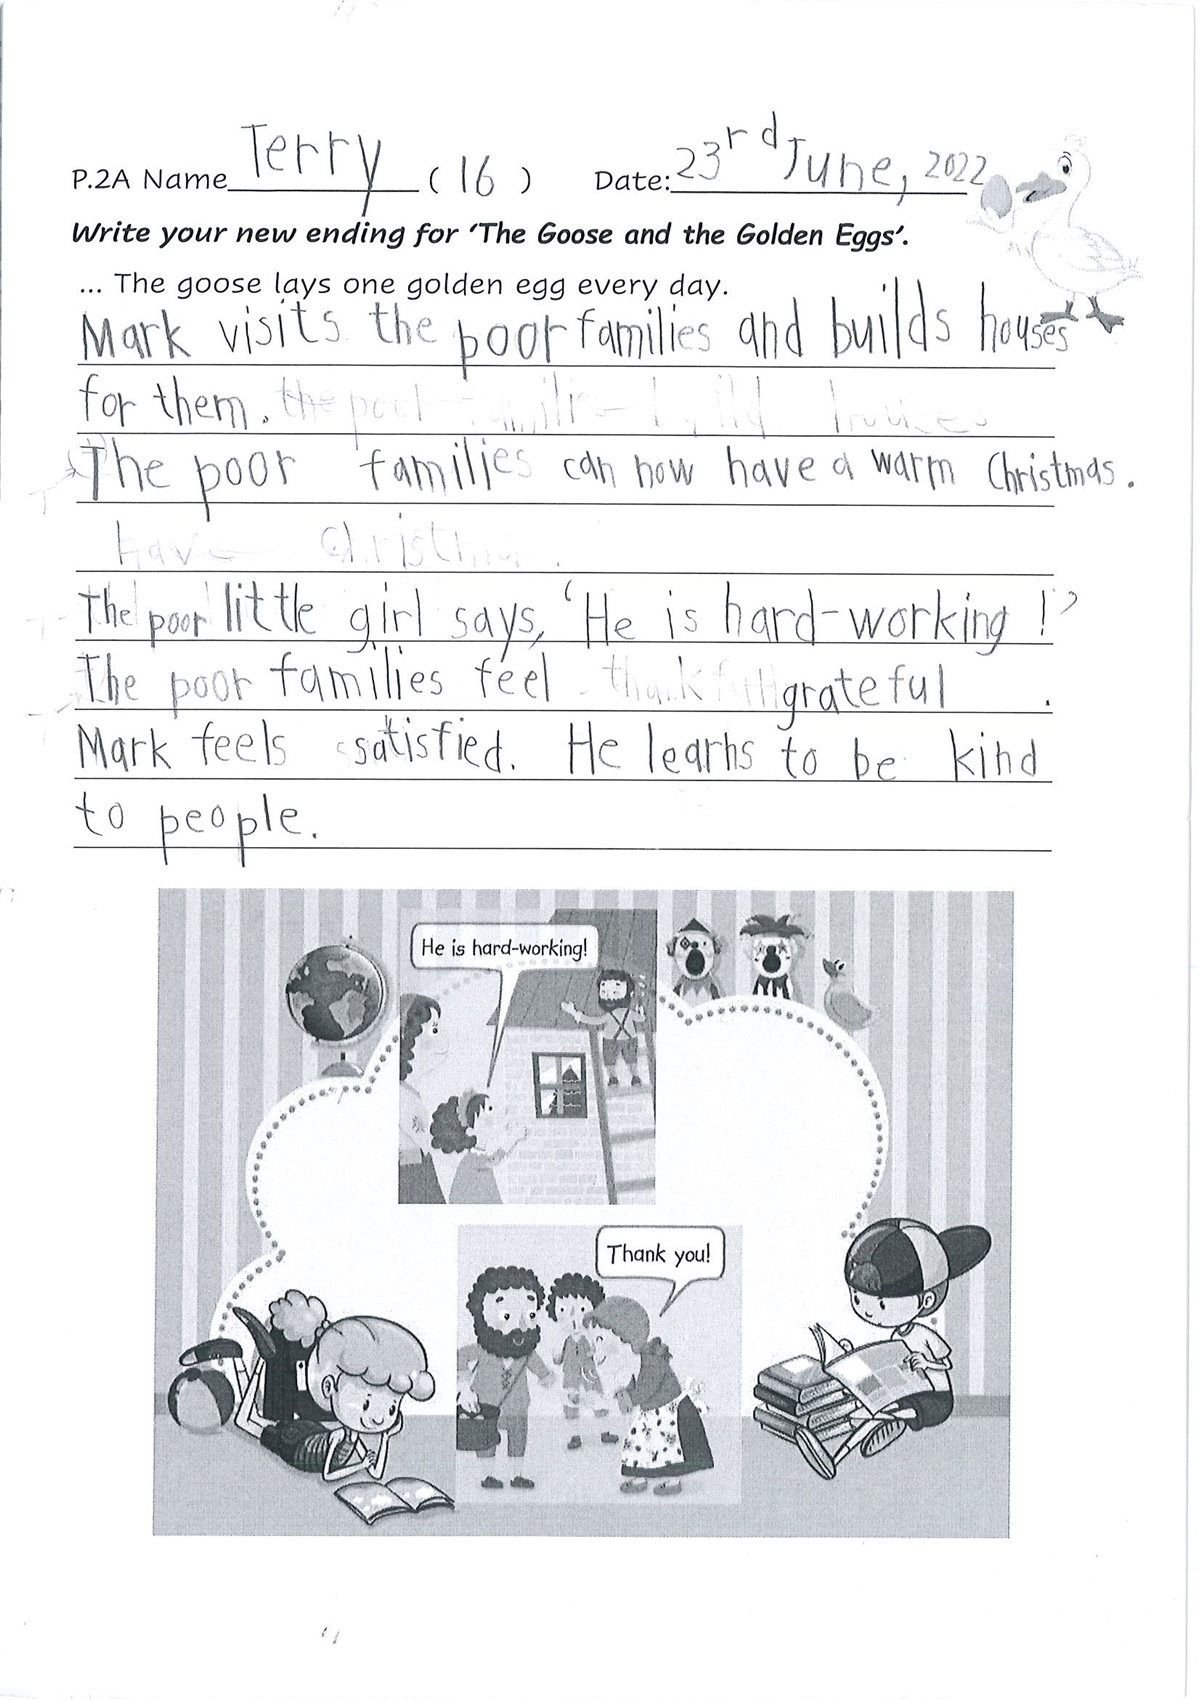 P.2A Name Terry ( 16 ) Date: 23rd June, 2022
Write your new ending for ‘The Goose and the Golden Eggs’.
... The goose lays one golden egg every day.
Mark visits the poor families and builds houses
for them.
The poor families can now have a warm Christmas.
The poor little girl says, ‘He is hard-working!’
The poor families feel grateful .
Mark feels satisfied. He learns to be kind
to people.
He is hard-working!
Thank you!